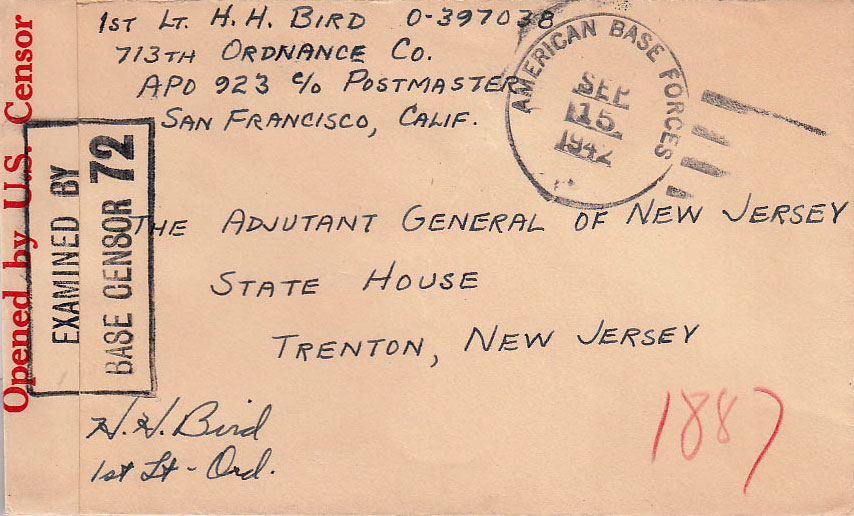 1ST LT. H. H. BIRD 0-397038
713TH ORDNANCE CO.
APO 923 c/o POSTMASTER
SAN FRANCISCO, CALIF.
AMERICAN BASE FORCES
SEP
15
1942
Opened by U.S. Censor
EXAMINED BY
BASE CENSOR 72
THE ADJUTANT GENERAL OF NEW JERSEY
STATE HOUSE
TRENTON, NEW JERSEY
H. H. Bird
1st Lt - Ord.
1887